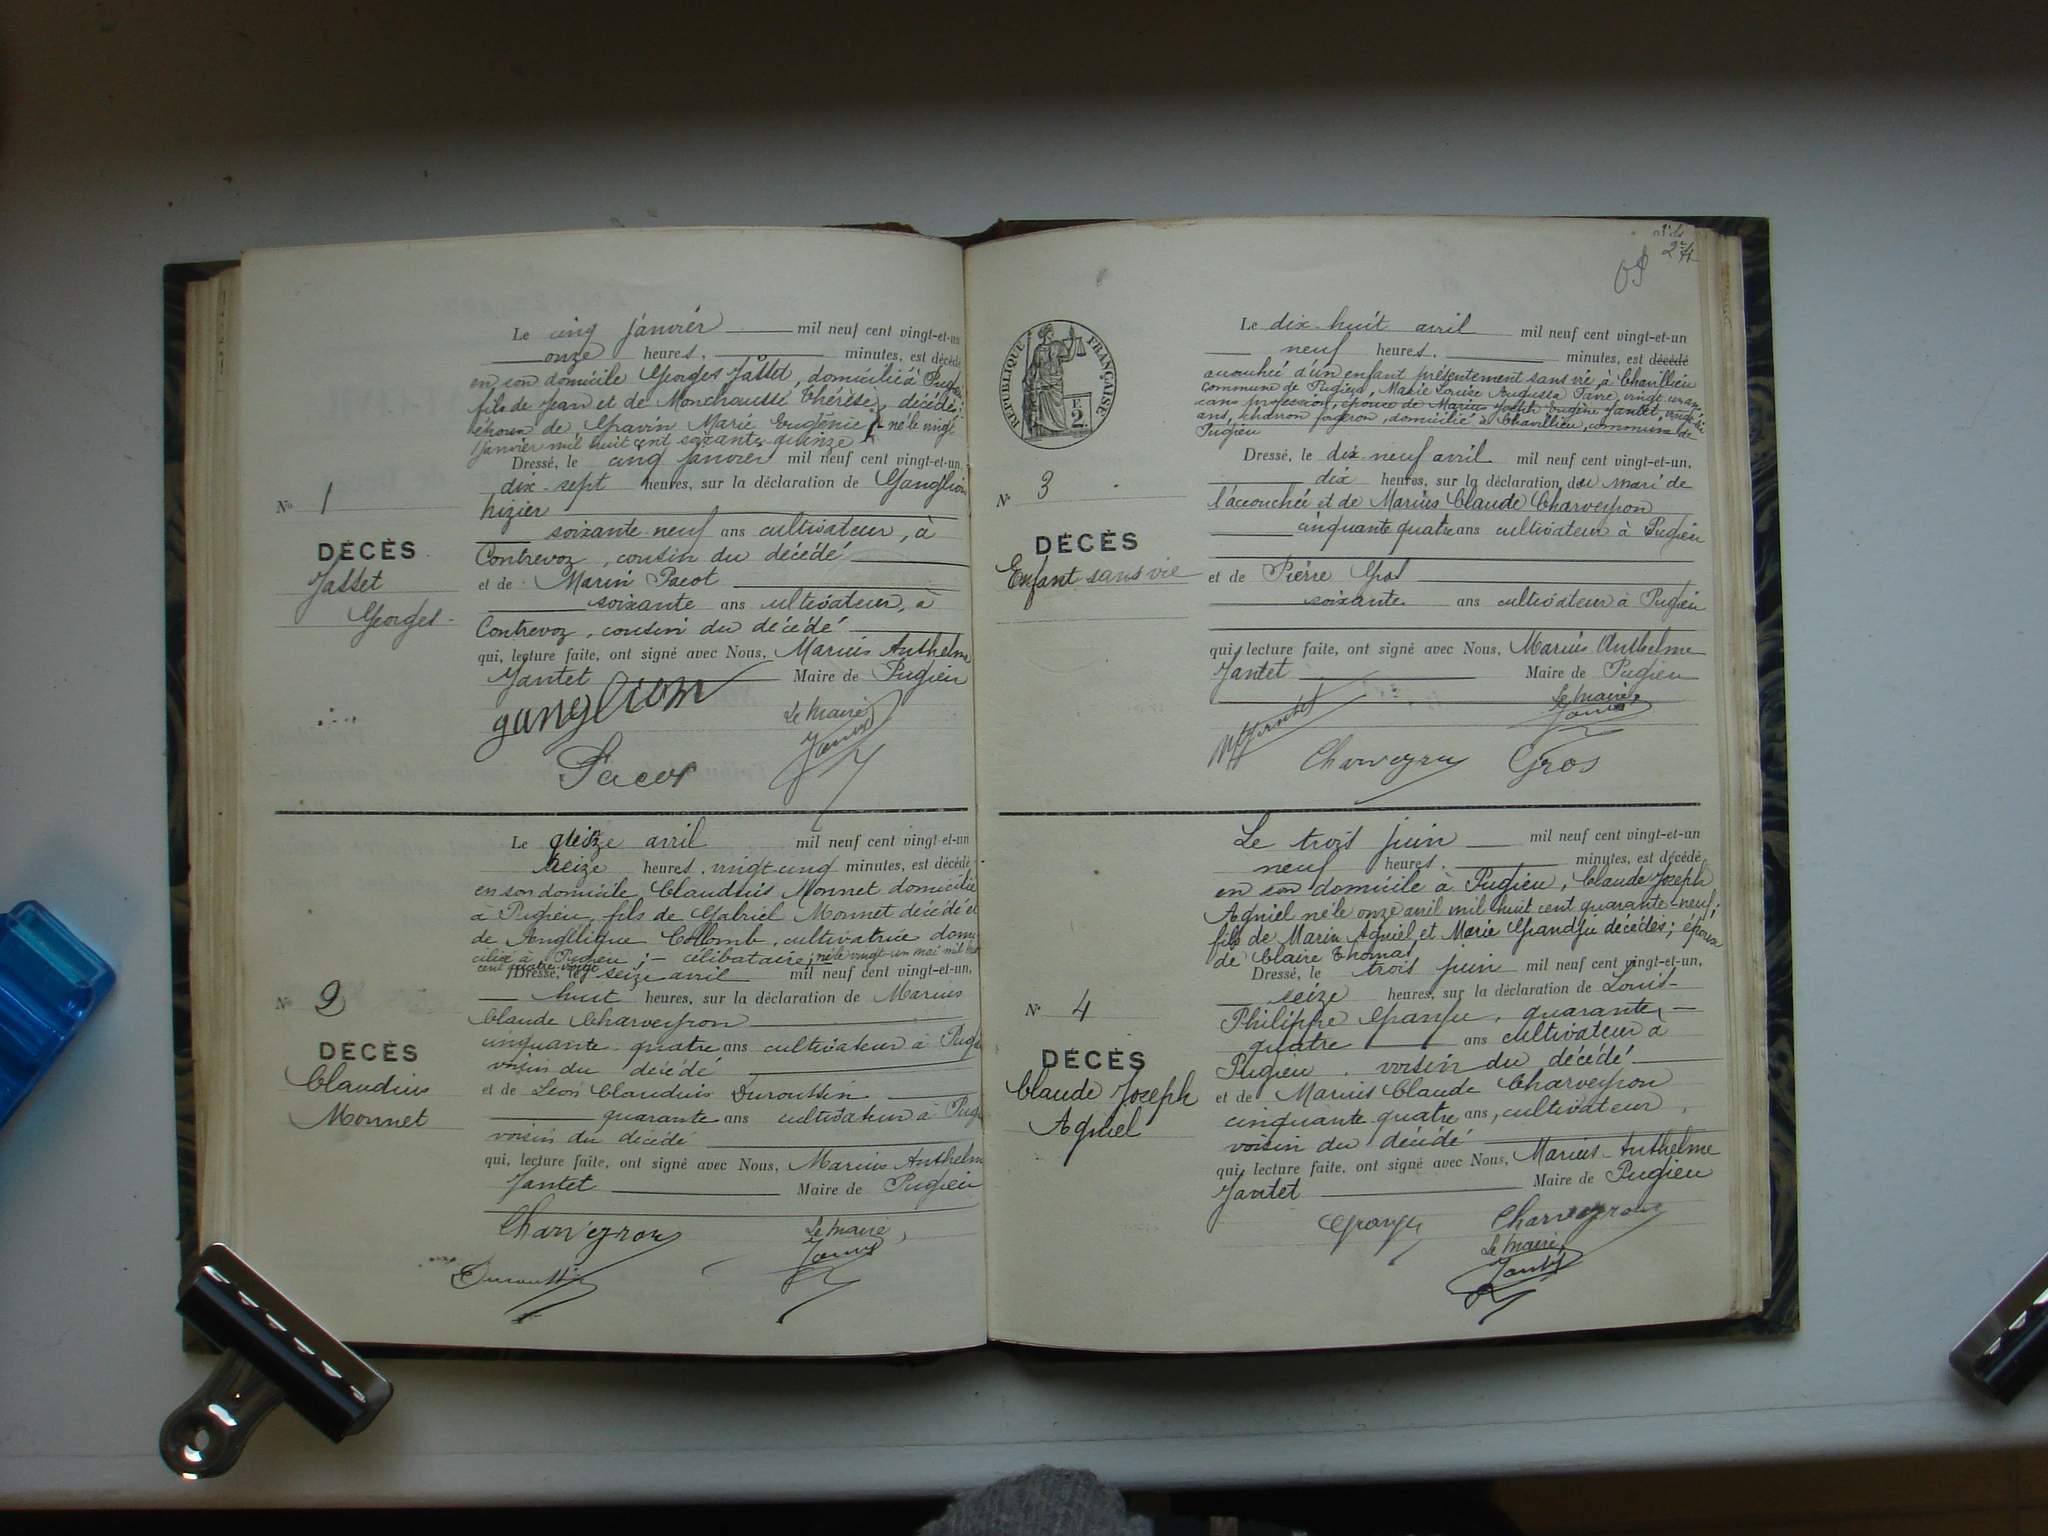 Le cinq janvier mil neuf cent vingt-et-un
onze heures, minutes, est décédé
en son domicile Georges Jasset, domicilié à
fils de Jean et de Monchausse Thérèse, décédés;
époux de Gravin Marie Eugénie; né le vingt
janvier mil huit cent soixante quinze
Dressé, le cinq janvier mil neuf cent vingt-et-un,
dix-sept heures, sur la déclaration de Ganglion
soixante-neuf ans cultivateur, à
Contrevoz, cousin du décédé
et de Marin Pacot
soixante ans cultivateur, à
Contrevoz, cousin du décédé
qui, lecture faite, ont signé avec Nous, Marius Anthelme
Jantet Maire de Pugieu
ganglion
Le Maire
Jantet
Pacot
N° 1
DÉCÈS
Jasset
Georges
Le quinze avril mil neuf cent vingt-et-un
seize heures, vingt-cinq minutes, est décédé
en son domicile Claudius Monnet domicilié
à Pugieu, fils de Gabriel Monnet décédé et
de Angélique Collomb, cultivatrice domi
ciliée à Pugieu; - célibataire; né le vingt-un mai mil huit
cent quatre-vingt
Dressé, le seize avril mil neuf cent vingt-et-un,
huit heures, sur la déclaration de Marius
Claude Charveyron
cinquante-quatre ans cultivateur à Pugieu
voisin du décédé
et de Léon Claudius Duroussin
quarante ans cultivateur à Pugieu
voisin du décédé
qui, lecture faite, ont signé avec Nous, Marius Anthelme
Jantet Maire de Pugieu
Charveyron
Le Maire,
Jantet
N° 2
DÉCÈS
Claudius
Monnet
274
RÉPUBLIQUE FRANÇAISE
2
Le dix-huit avril mil neuf cent vingt-et-un
neuf heures, minutes, est décédé
accouchée d'un enfant présentement sans vie, à Chavillieu
Commune de Pugieu, Marie Louise Augusta Favre, vingt-un ans
sans profession, épouse de Marius Joseph Eugène Jantet,
ans, charron forgeron, domicilié à Chavillieu, commune de
Pugieu
Dressé, le dix-neuf avril mil neuf cent vingt-et-un,
dix heures, sur la déclaration du mari de
l'accouchée et de Marius Claude Charveyron
cinquante quatre ans cultivateur à Pugieu
et de Pierre Gros
soixante ans cultivateur à Pugieu
qui, lecture faite, ont signé avec Nous, Marius Anthelme
Jantet Maire de Pugieu
Le Maire,
Jantet
Charveyron Gros
N° 3
DÉCÈS
Enfant sans vie
Le trois juin mil neuf cent vingt-et-un
neuf heures, minutes, est décédé
en son domicile à Pugieu, Claude Joseph
Agniel né le onze avril mil huit cent quarante-neuf;
fils de Marin Agniel et Marie Grandju décédés; époux
de Claire Thomas
Dressé, le trois juin mil neuf cent vingt-et-un,
seize heures, sur la déclaration de Louis-
Philippe quarante-
quatre ans cultivateur à
Pugieu, voisin du décédé
et de Marius Claude Charveyron
cinquante quatre ans, cultivateur,
voisin du décédé
qui, lecture faite, ont signé avec Nous, Marius Anthelme
Jantet Maire de Pugieu
Charveyron
Le Maire,
Jantet
N° 4
DÉCÈS
Claude Joseph
Agniel